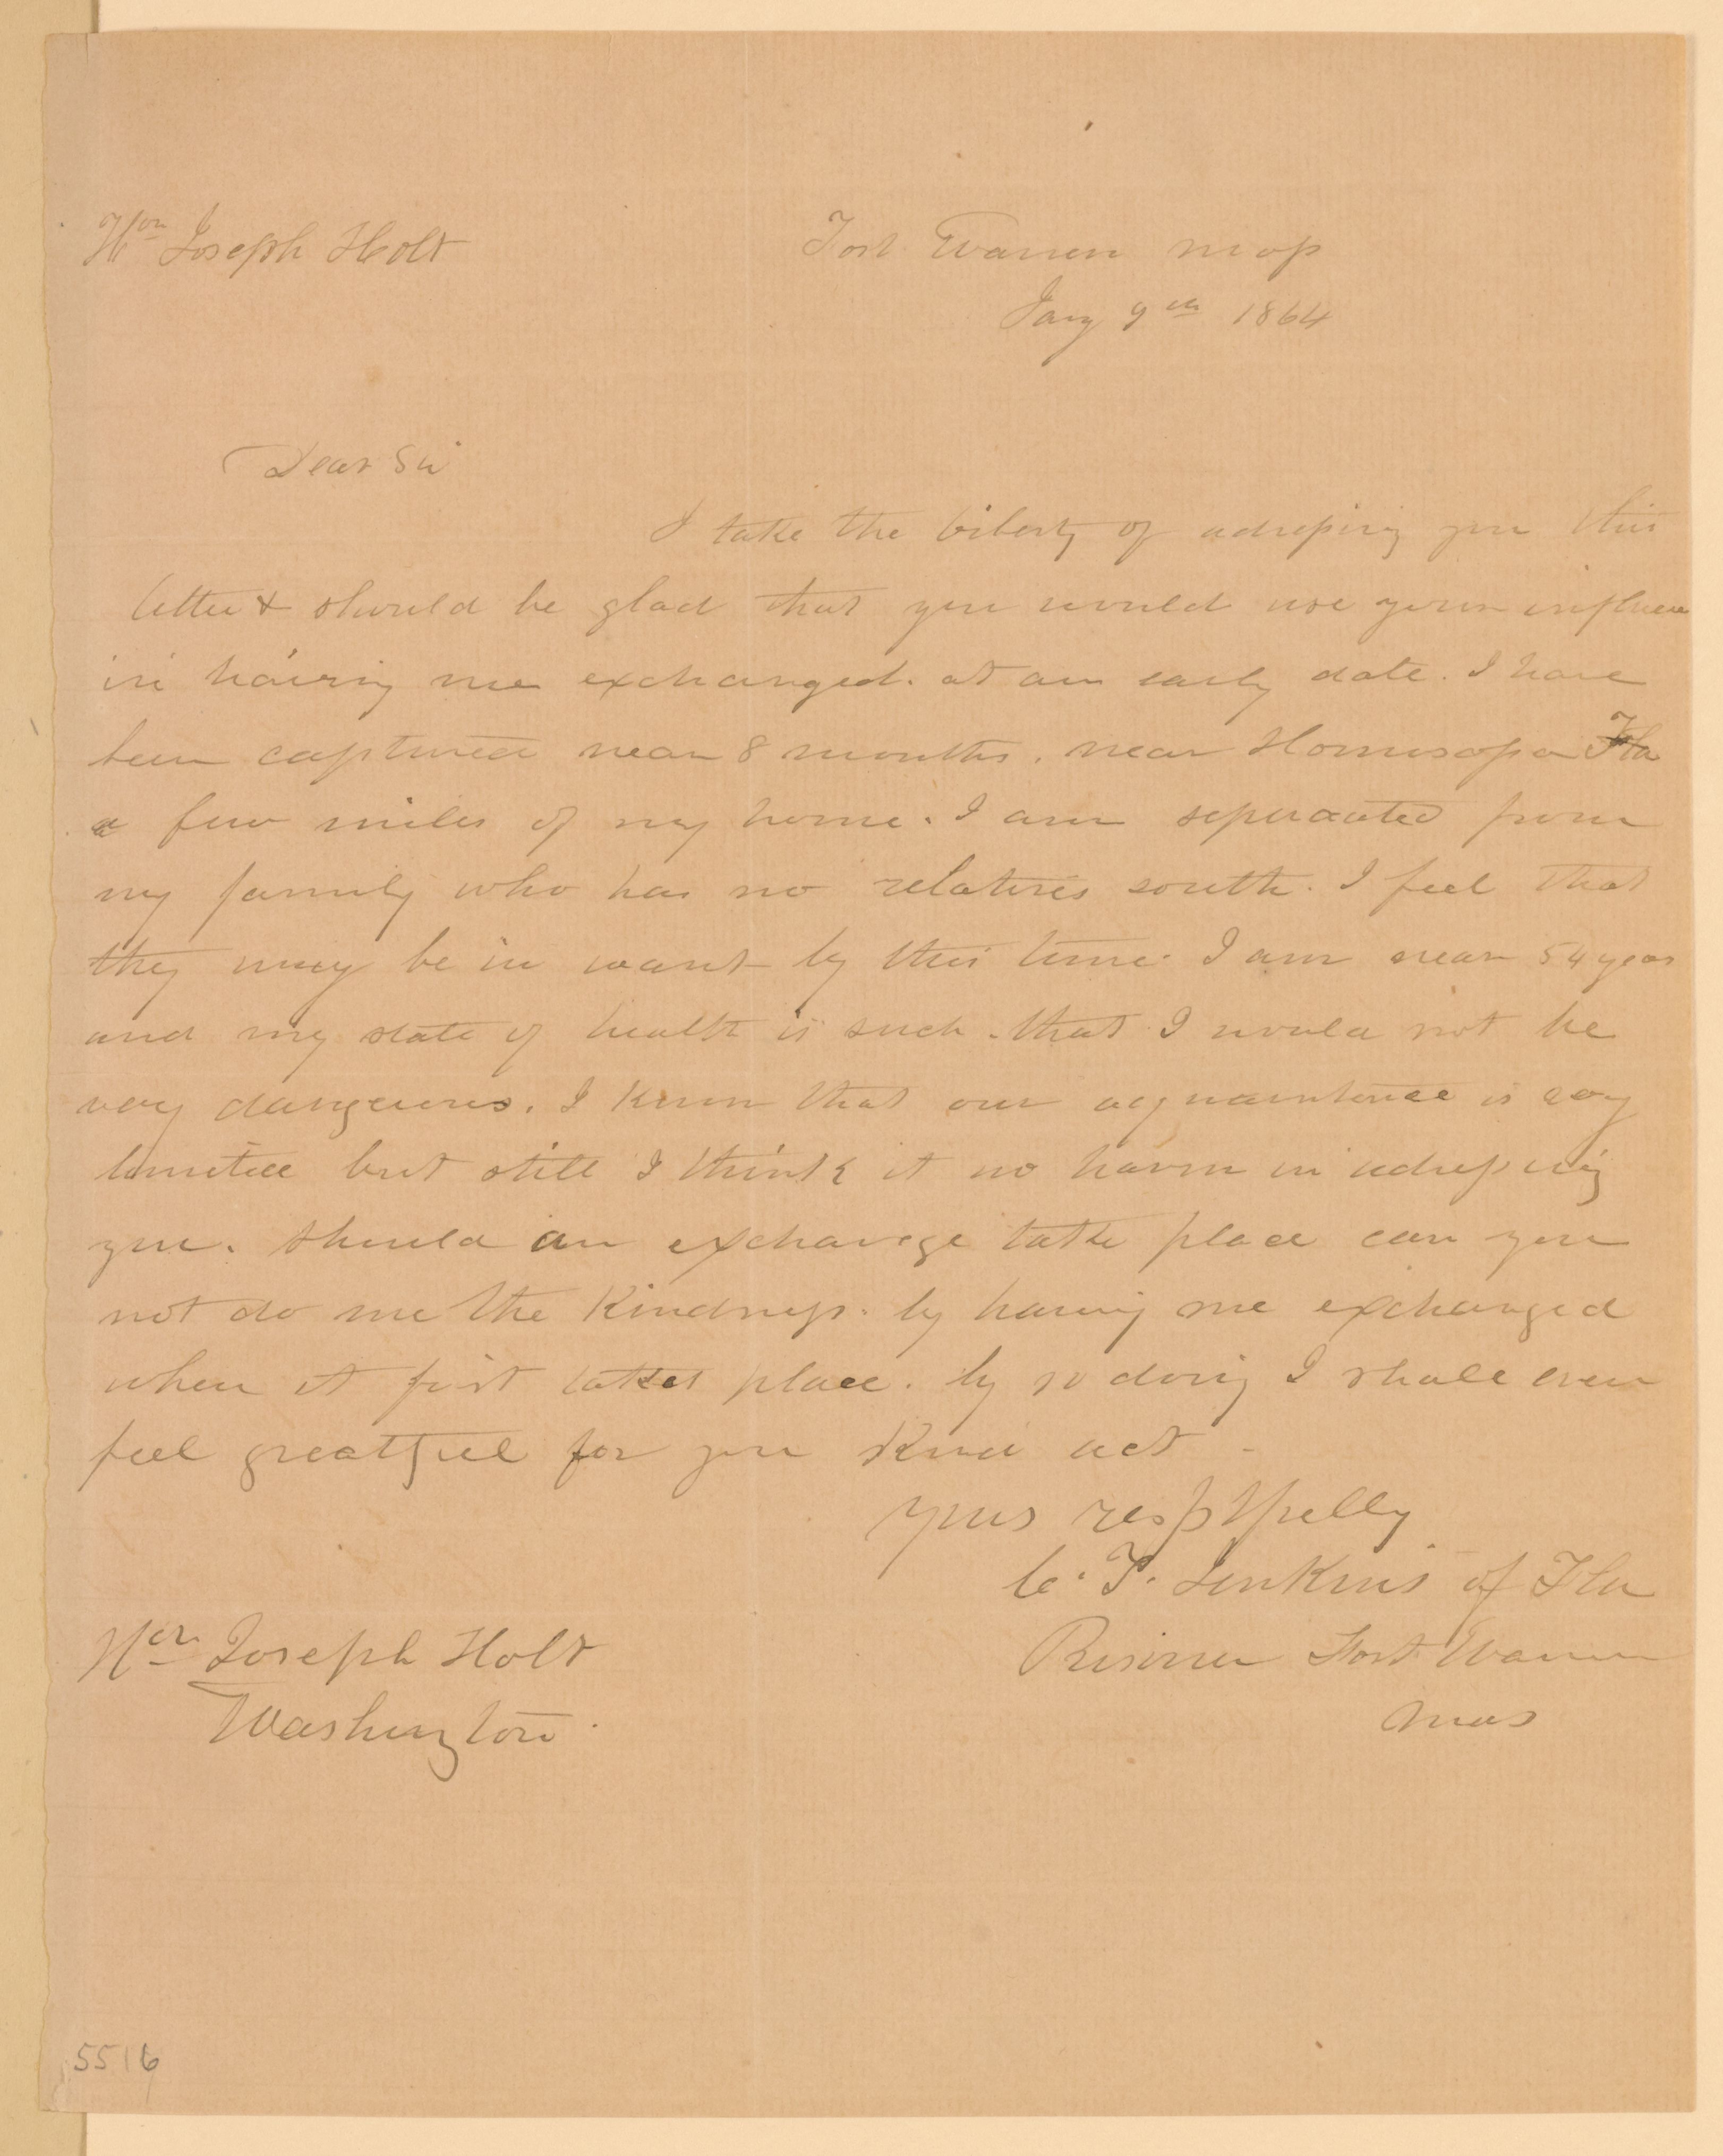 Hon Joseph Holt
Fort Warren Mass
Jany 9th 1864
Dear Sir
I take the liberty of adressing you this
letter & should be glad that you would use your influence
in having me exchanged. at an early date. I have
been captured near 8 months. near Homosassa Fla
a few miles of my home. I am separated from
my family who has no relatives south. I feel that
they may be in want by this time. I am near 54 years
and my state of health is such. that I would not be
very dangerous. I know that our acquaintence is very
limited but still I think it no harm in adressing
you. should an exchange take place can you
not do me the Kindness. by having me exchanged
when it first takes place. by so doing I shall ever
feel greatful for you Kind act -
yours resptfully
C. T. Jenkins of Fla
Prisoner Fort Warren
Mas
Hon Joseph Holt
Washington.
5516